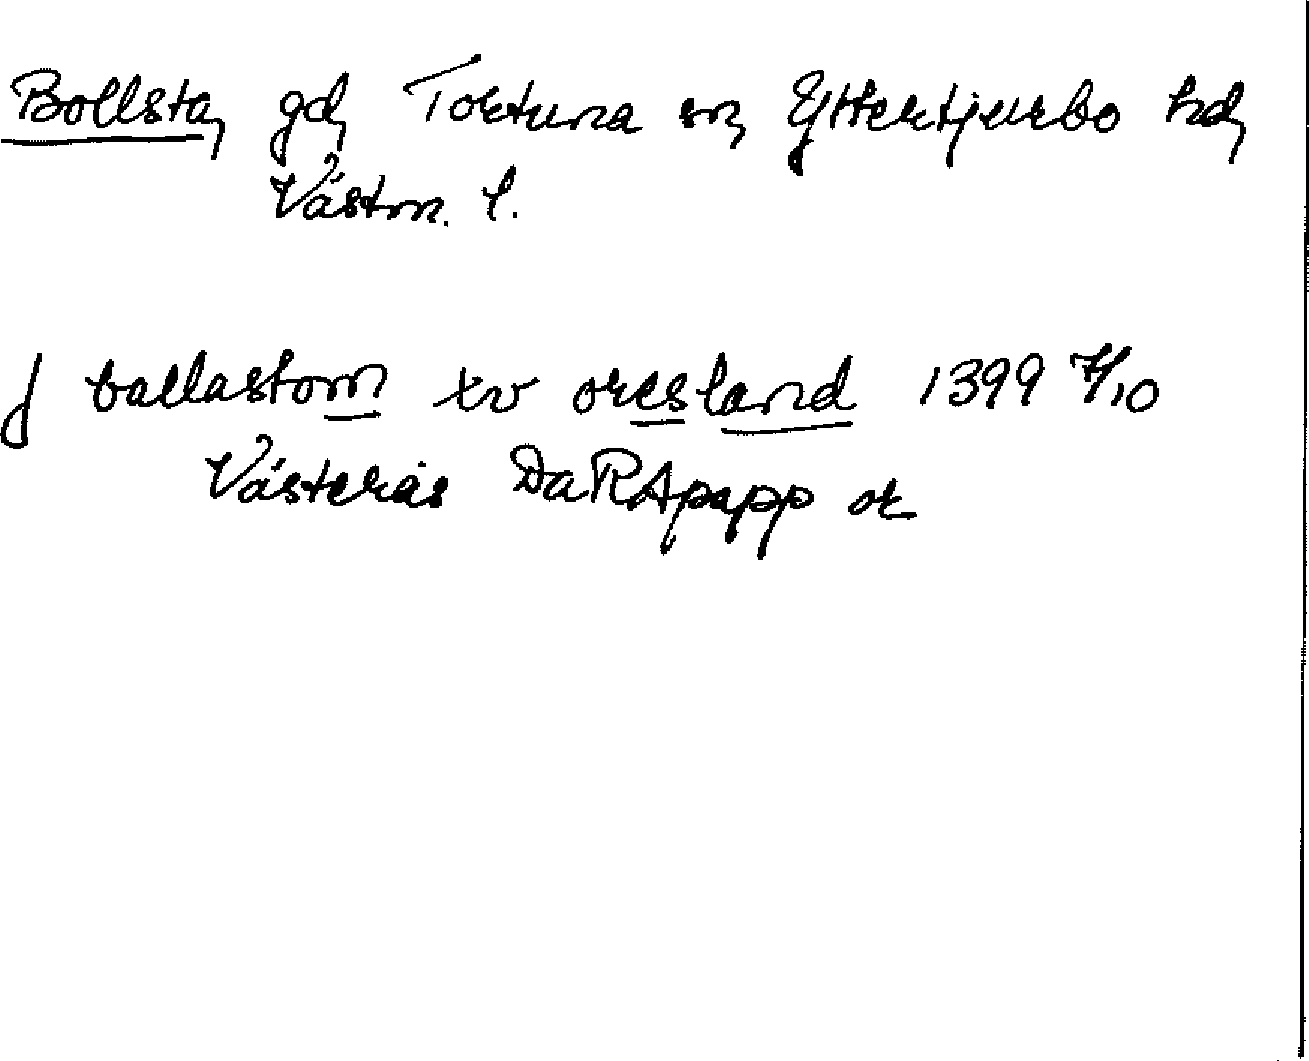 Bollsta, gd, Tortuna sn, Yttertjurbo hd,
Västm. l.
J ballastom xv oresland 1399 7/10
Västerås DaRApapp or